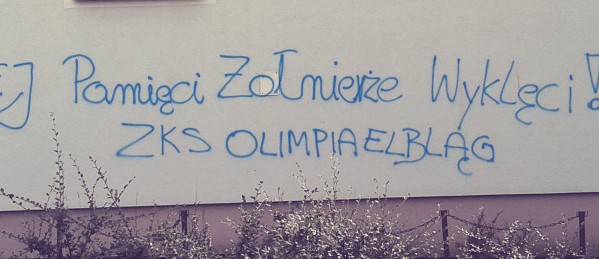 Pamięci Żołnierze Wyklęci!
ZKS OLIMPIA ELBLĄG